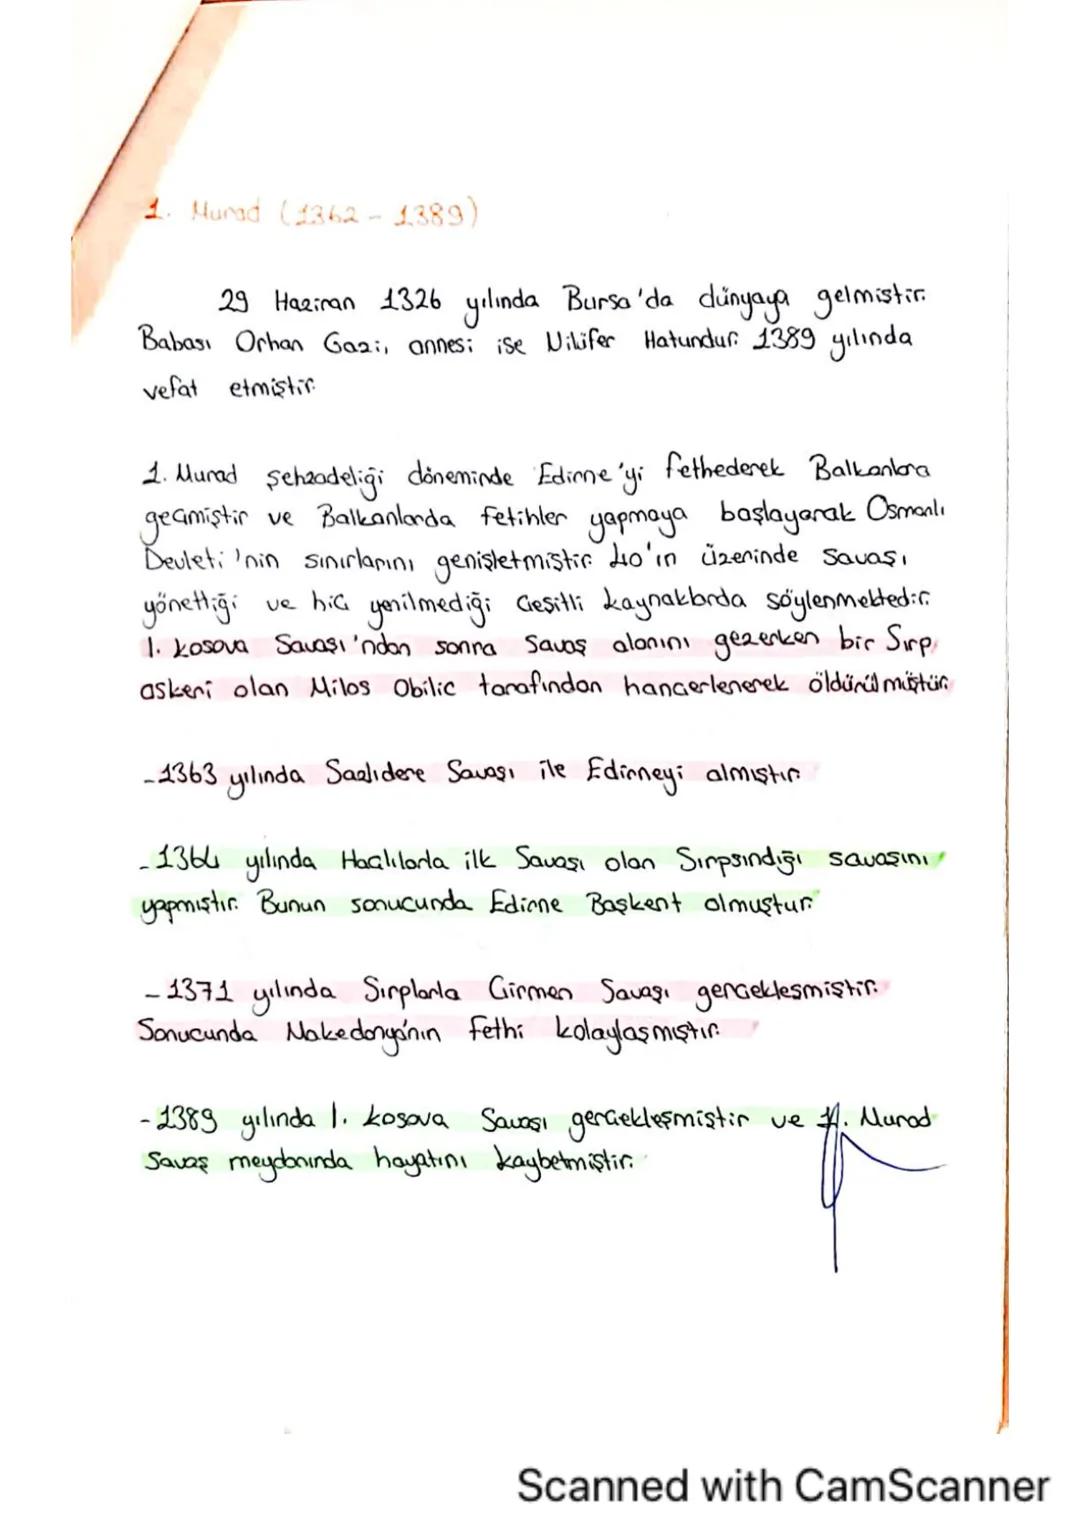 1. Murad (1362 - 1389)
29 Haziran 1326 yılında Bursa'da dünyaya gelmiştir.
Babası Orhan Gazi, annesi ise Nilüfer Hatundur. 1389 yılında
vefat etmiştir.
1. Murad şehzadeliği döneminde Edirne'yi fethederek Balkanlara
geçmiştir ve Balkanlarda fetihler yapmaya başlayarak Osmanlı
Devleti'nin sınırlarını genişletmiştir. 40'ın üzerinde savaşı
yönettiği ve hiç yenilmediği çeşitli kaynaklarda söylenmektedir.
1. Kosova Savaşı'ndan sonra Savaş alanını gezerken bir Sırp
askeri olan Milos Obilic tarafından hançerlenerek öldürülmüştür.
- 1363 yılında Sazlıdere Savaşı ile Edirneyi almıştır.
- 1364 yılında Haçlılarla ilk Savaşı olan Sırpsındığı savaşını
yapmıştır. Bunun sonucunda Edirne Başkent olmuştur.
- 1371 yılında Sırplarla Çirmen Savaşı gerçekleşmiştir.
Sonucunda Makedonya'nın Fethi kolaylaşmıştır.
- 1389 yılında 1. Kosova Savaşı gerçekleşmiştir ve 1. Murad
Savaş meydanında hayatını kaybetmiştir.
Scanned with CamScanner